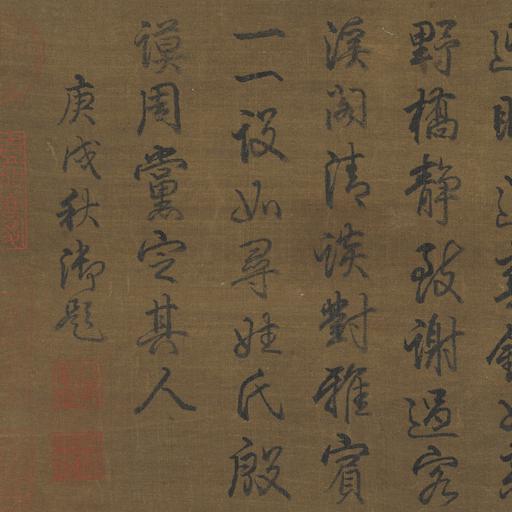 野橋靜致謝過客
溪閣清談對雅賓
一一設如尋姓氏殷
謨周黨定其人
庚戌秋御題